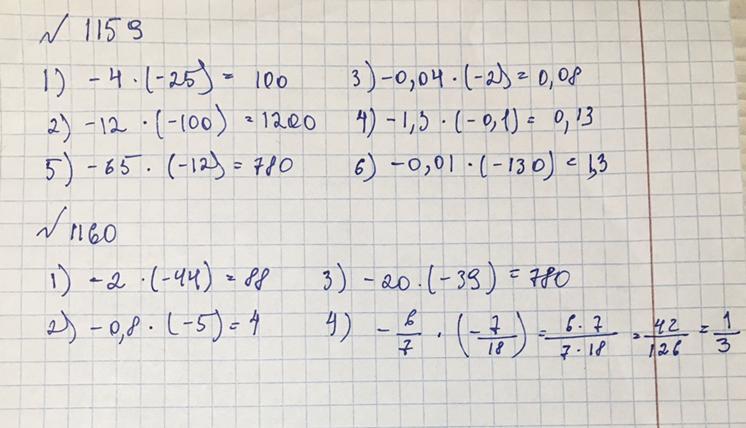 № 1159
1) -4 · (-25) = 100 3) -0,04 · (-2) = 0,08
2) -12 · (-100) = 1200 4) -1,3 · (-0,1) = 0,13
5) -65 · (-12) = 780 6) -0,01 · (-130) = 1,3
№ 1160
1) -2 · (-44) = 88 3) -20 · (-39) = 780
2) -0,8 · (-5) = 4 4) -6/7 · (-7/18) = 6·7/7·18 = 42/126 = 1/3